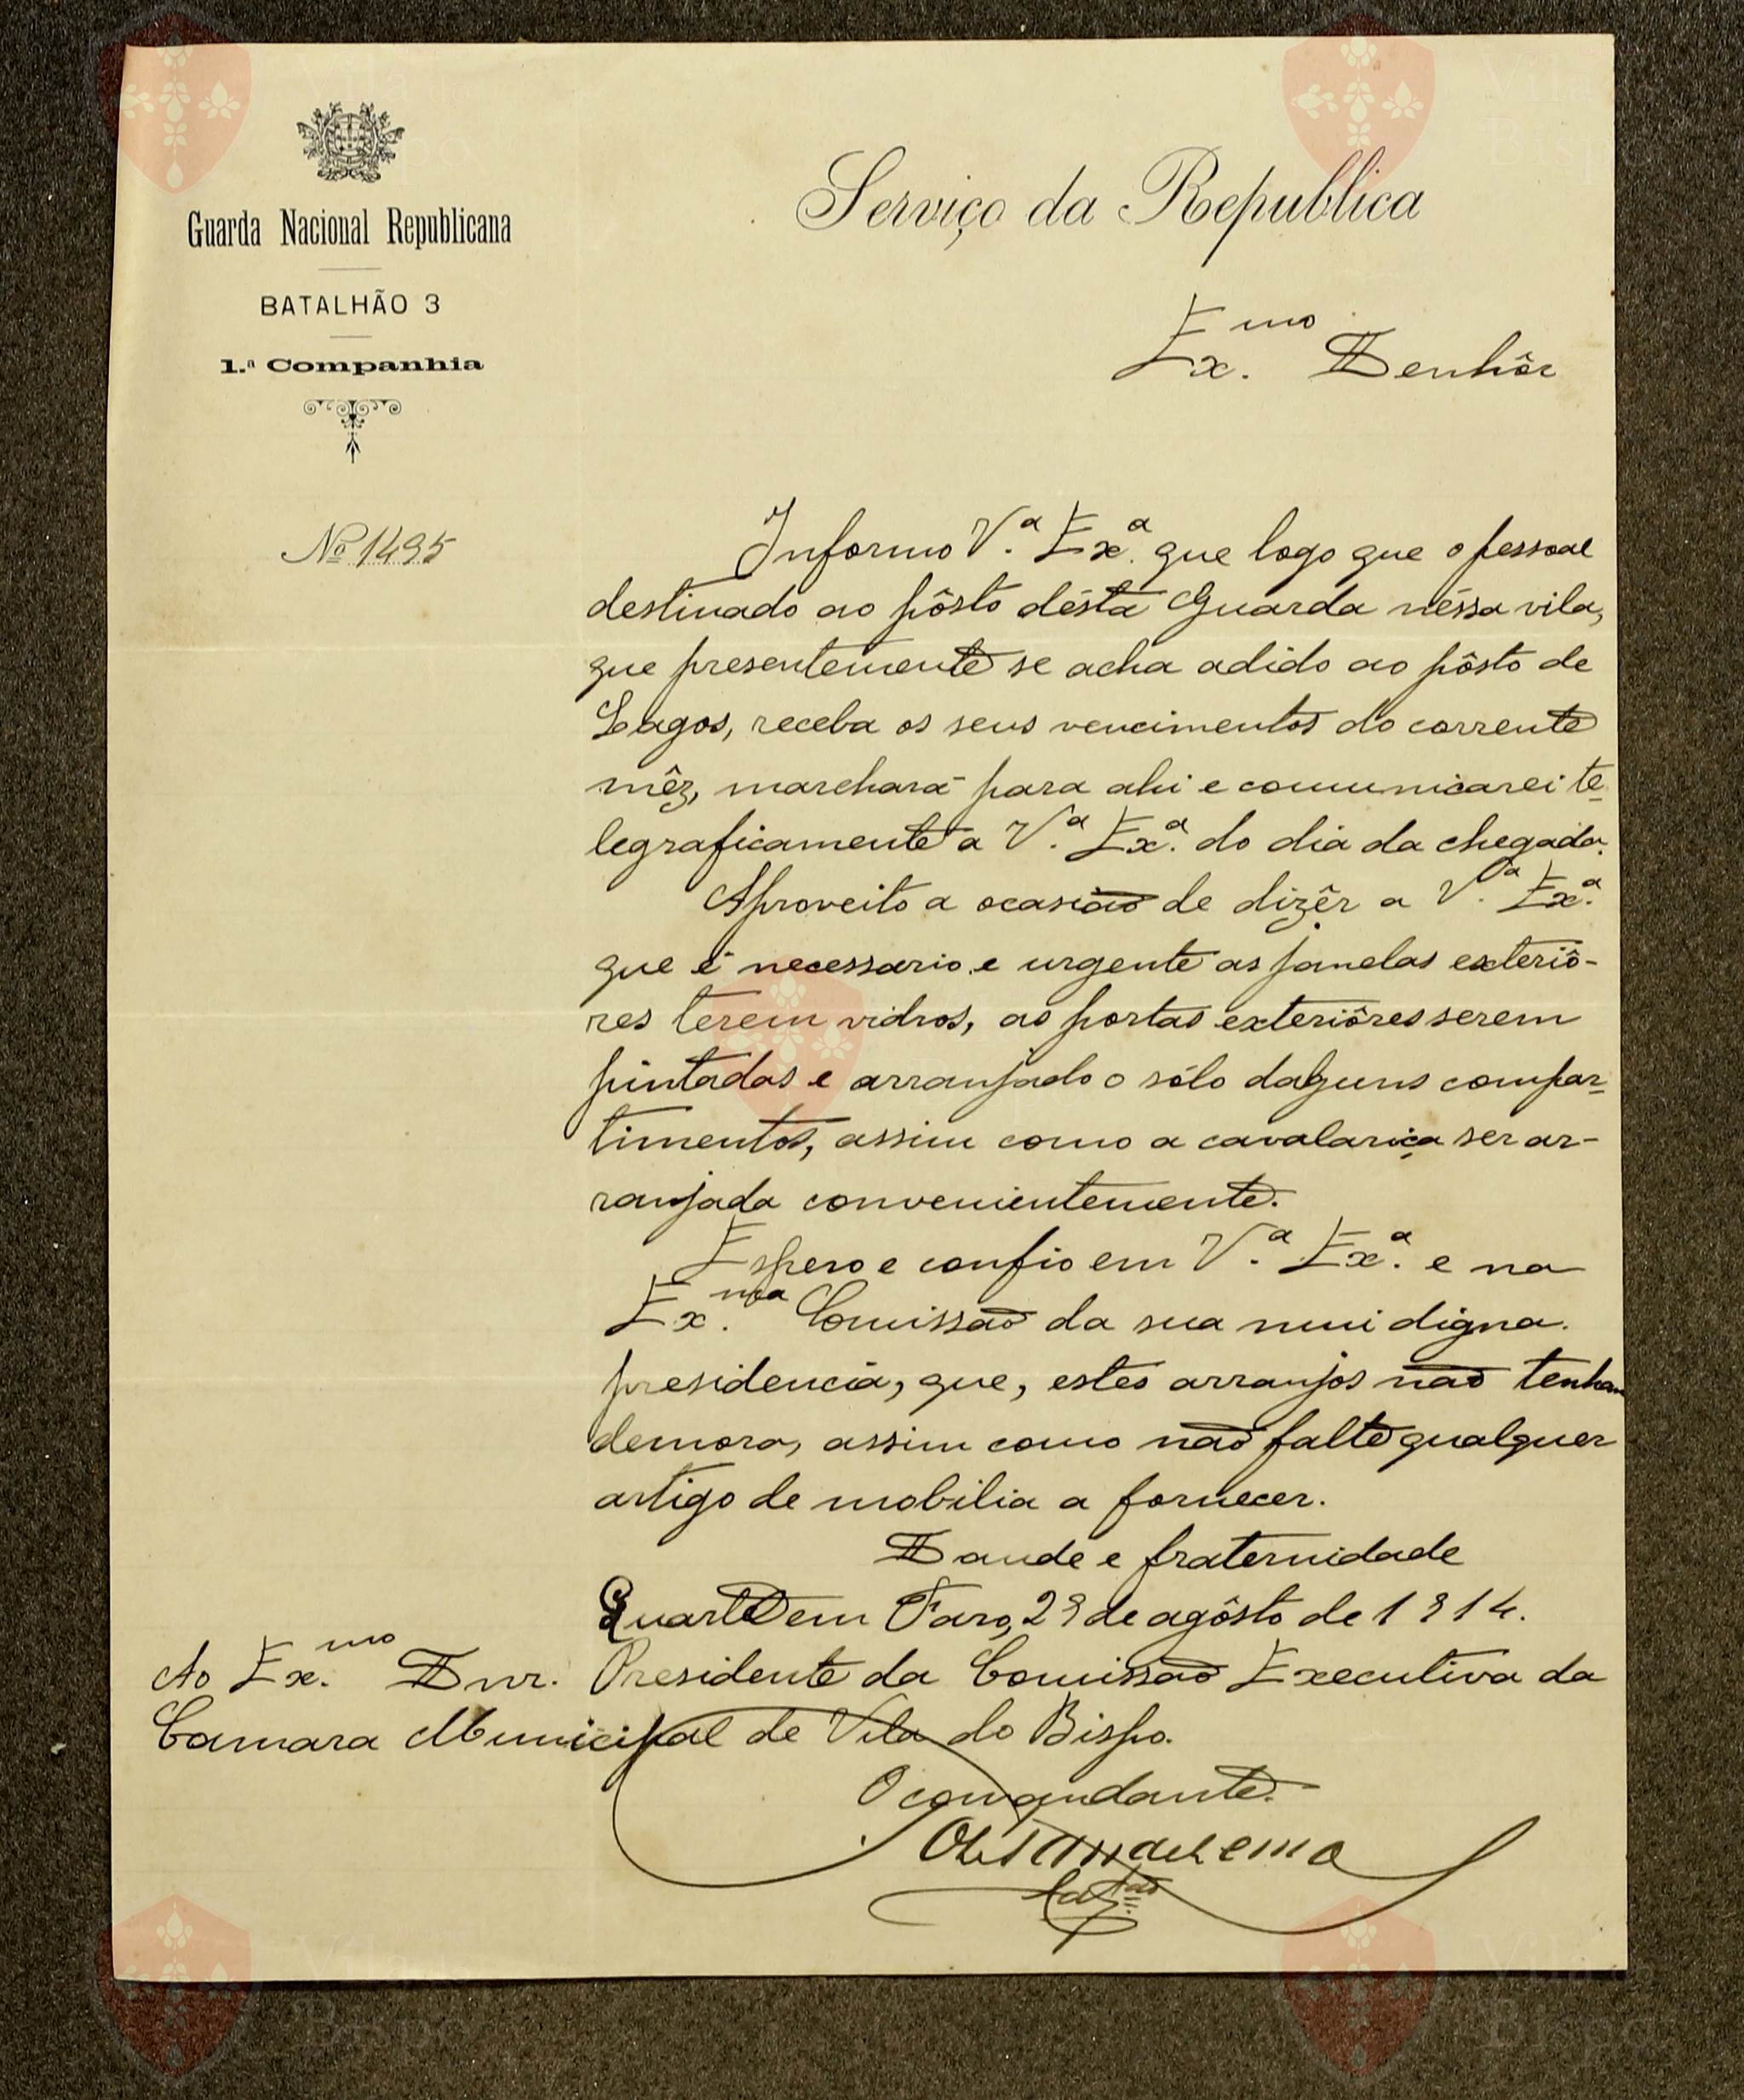 Guarda Nacional Republicana
BATALHÃO 3
1.ª Companhia
Nº 1495
Serviço da Republica
Ex.mo Senhôr
Informo V.ª Ex.ª que logo que o pessoal
destinado ao pôsto désta Guarda néssa vila,
que presentemente se acha adido ao pôsto de
Lagos, receba os seus vencimentos do corrente
mêz, marchará para ahi e comunicarei te-
legraficamente a V.ª Ex.ª do dia da chegada.
Aproveito a ocasião de dizêr a V.ª Ex.ª
que é necessario e urgente as janelas exteriô-
res terem vidros, as portas exteriôres serem
pintadas e arranjado o sólo dalguns compar-
timentos, assim como a cavalariça ser ar-
ranjada convenientemente.
Espero e confio em V.ª Ex.ª e na
Ex.ma Comissão da sua mui digna
presidencia, que, estes arranjos não tenham
demora, assim como não falte qualquer
artigo de mobilia a fornecer.
Saude e fraternidade
Quartel em Faro, 29 de agôsto de 1914.
Ao Ex.mo Snr. Presidente da Comissão Executiva da
Camara Municipal de Vila do Bispo.
O comandante
Vila do
Bispo